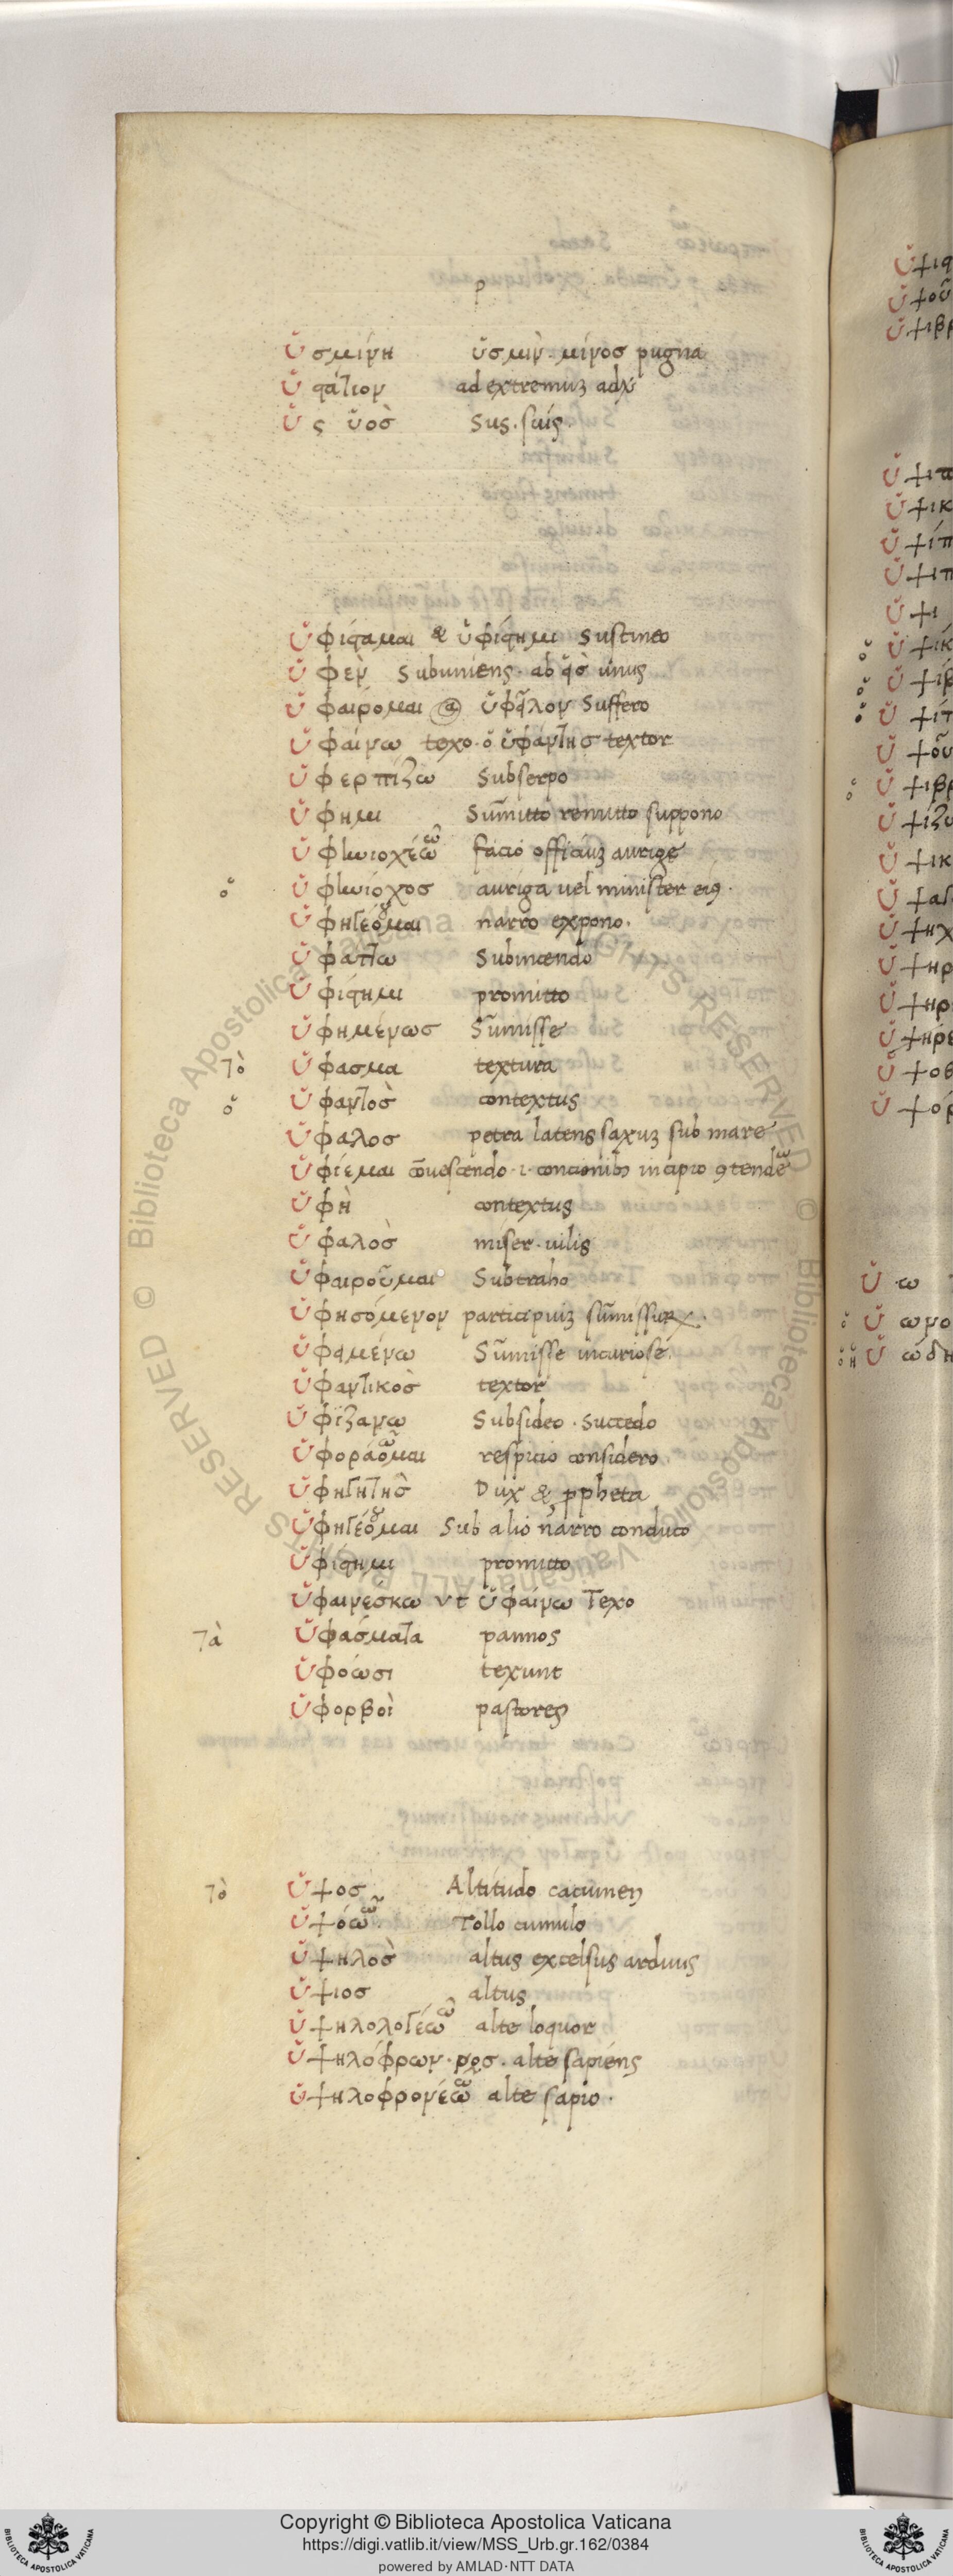 ρ
ὑσμίνη ὑσμὶν · μίνοσ pugna
ὑστάτιον ad extremuʒ
ὗς ὑὸσ Sus · suis
ὑφίσταμαι & ὑφίστημι Sustineo
ὑφὲν Subuniens · ab unus
ὑφαίρομαι ὕφαλον Suffero
ὑφαίνω texo · ὁ ὑφάντησ textor
ὑφερπίζω Subserpo
ὕφημι Sūmitto remitto suppono
ὑφηνιοχέω facio officiuʒ aurige
ὁ ὑφηνίοχοσ auriga uel minister eiꝰ ·
ὑφηγέομαι narro expono ·
ὑφάπτω Subincendo
ὑφίστημι promitto
ὑφημένωσ Sūmisse
τὸ ὕφασμα textura
ὁ ὑφαντὸσ contextus
ὕφαλοσ petra latens saxuʒ sub mare
ὑφίεμαι
ὑφὴ contextus
ὑφαλὸσ miser · uilis
ὑφαιροῦμαι Subtraho
ὑφησόμενον participiuʒ
ὑφαμένω Sūmisse incuriose ·
ὑφαντικὸσ textor
ὑφϊζανω Subsideo · Succedo
ὑφοράομαι respicio considero
ὑφηγητὴσ Dux & ꝓpheta
ὑφηγέομαι Sub alio narro conduco
ὑφίστημι promitto
ὑφαινέσκω vt ὑφαίνω Texo
τὰ ὑφάσματα pannos
ὑφόωσι texunt
ὑφορβοὶ pastores
τὸ ὕψοσ Altitudo cacumen
ὑψόω Tollo cumulo
ὑψηλὸσ altus excelsus arduus
ὕψιοσ altus
ὑψηλολογέω alte loquor
ὑψηλόφρων · νοσ · alte sapiens
ὑψηλοφρονέω alte sapio ·
Copyright © Biblioteca Apostolica Vaticana
https://digi.vatlib.it/view/MSS_Urb.gr.162/0384
powered by AMLAD·NTT DATA